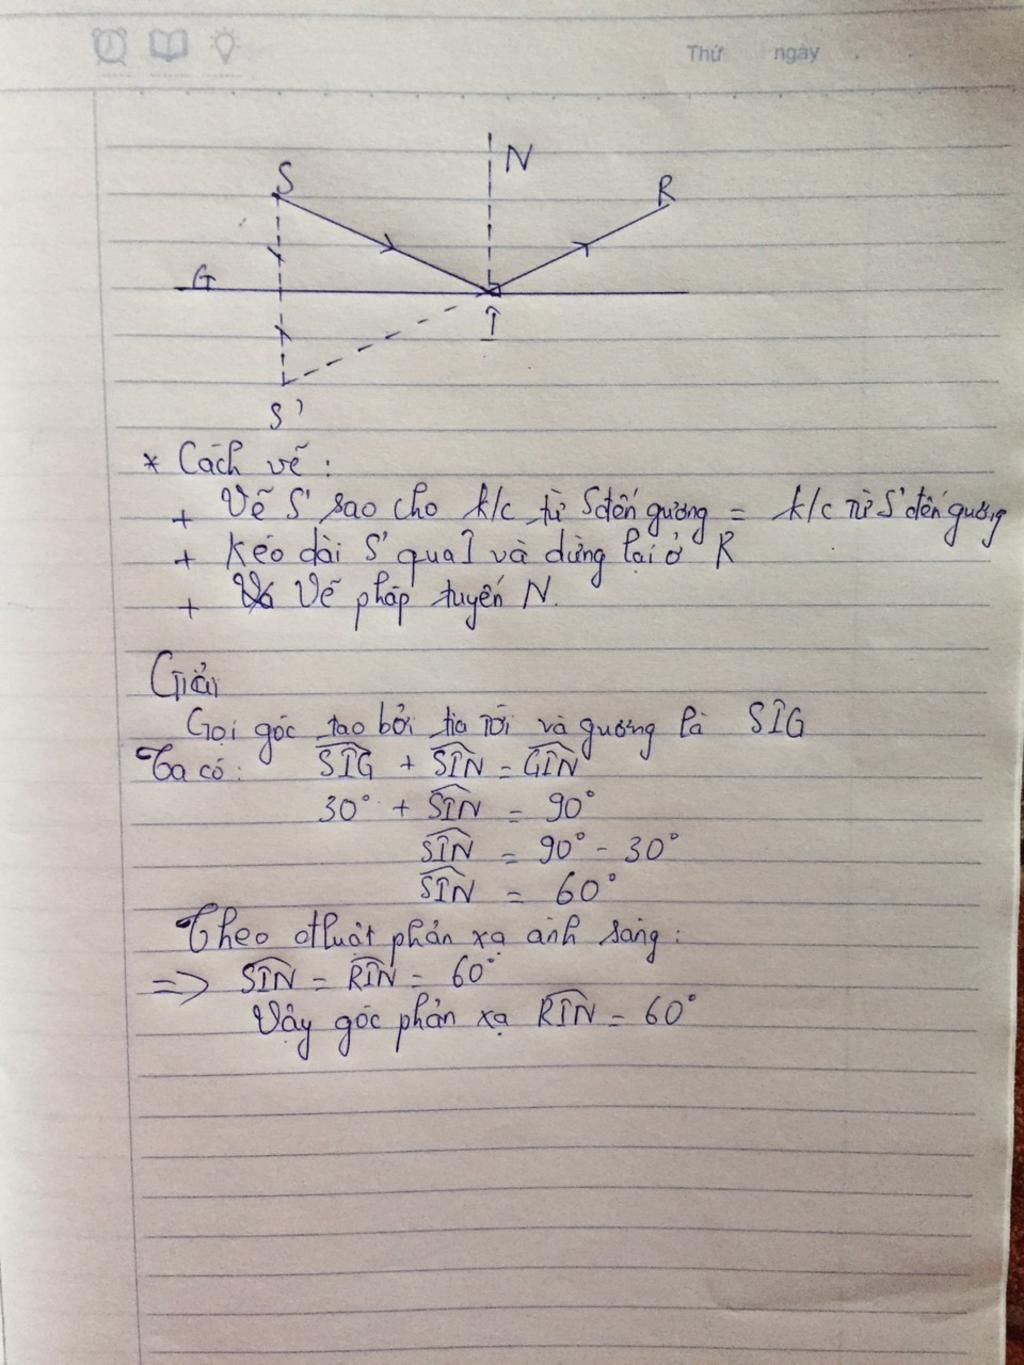 Thứ ngày
N
S
R
G
I
S'
* Cách vẽ :
+ Vẽ S' sao cho k/c từ S đến gương = k/c từ S' đến gương
+ Kéo dài S' qua I và dừng lại ở R
+ Vẽ pháp tuyến N.
Giải
Gọi góc tạo bởi tia tới và gương là SIG
Ta có: SIG + SIN = GIN
30° + SIN = 90°
SIN = 90° - 30°
SIN = 60°
Theo đluật phản xạ ánh sáng :
=> SIN = RIN = 60°
Vậy góc phản xạ RIN = 60°